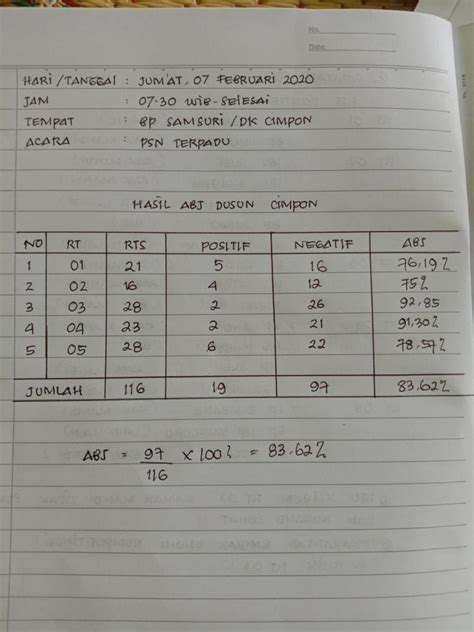 No.
Date:
HARI/TANGGAL : JUM'AT, 07 FEBRUARI 2020
JAM : 07.30 WIB-SELESAI
TEMPAT : BP SAMSURI/DK CIMPON
ACARA : PSN TERPADU
HASIL ABJ DUSUN CIMPON
NO RT RTS POSITIF NEGATIF ABJ
1 01 21 5 16 76,19%
2 02 16 4 12 75%
3 03 28 2 26 92,85
4 04 23 2 21 91,30%
5 05 28 6 22 78,57%
JUMLAH 116 19 97 83,62%
ABJ = 97 × 100% = 83,62%
116